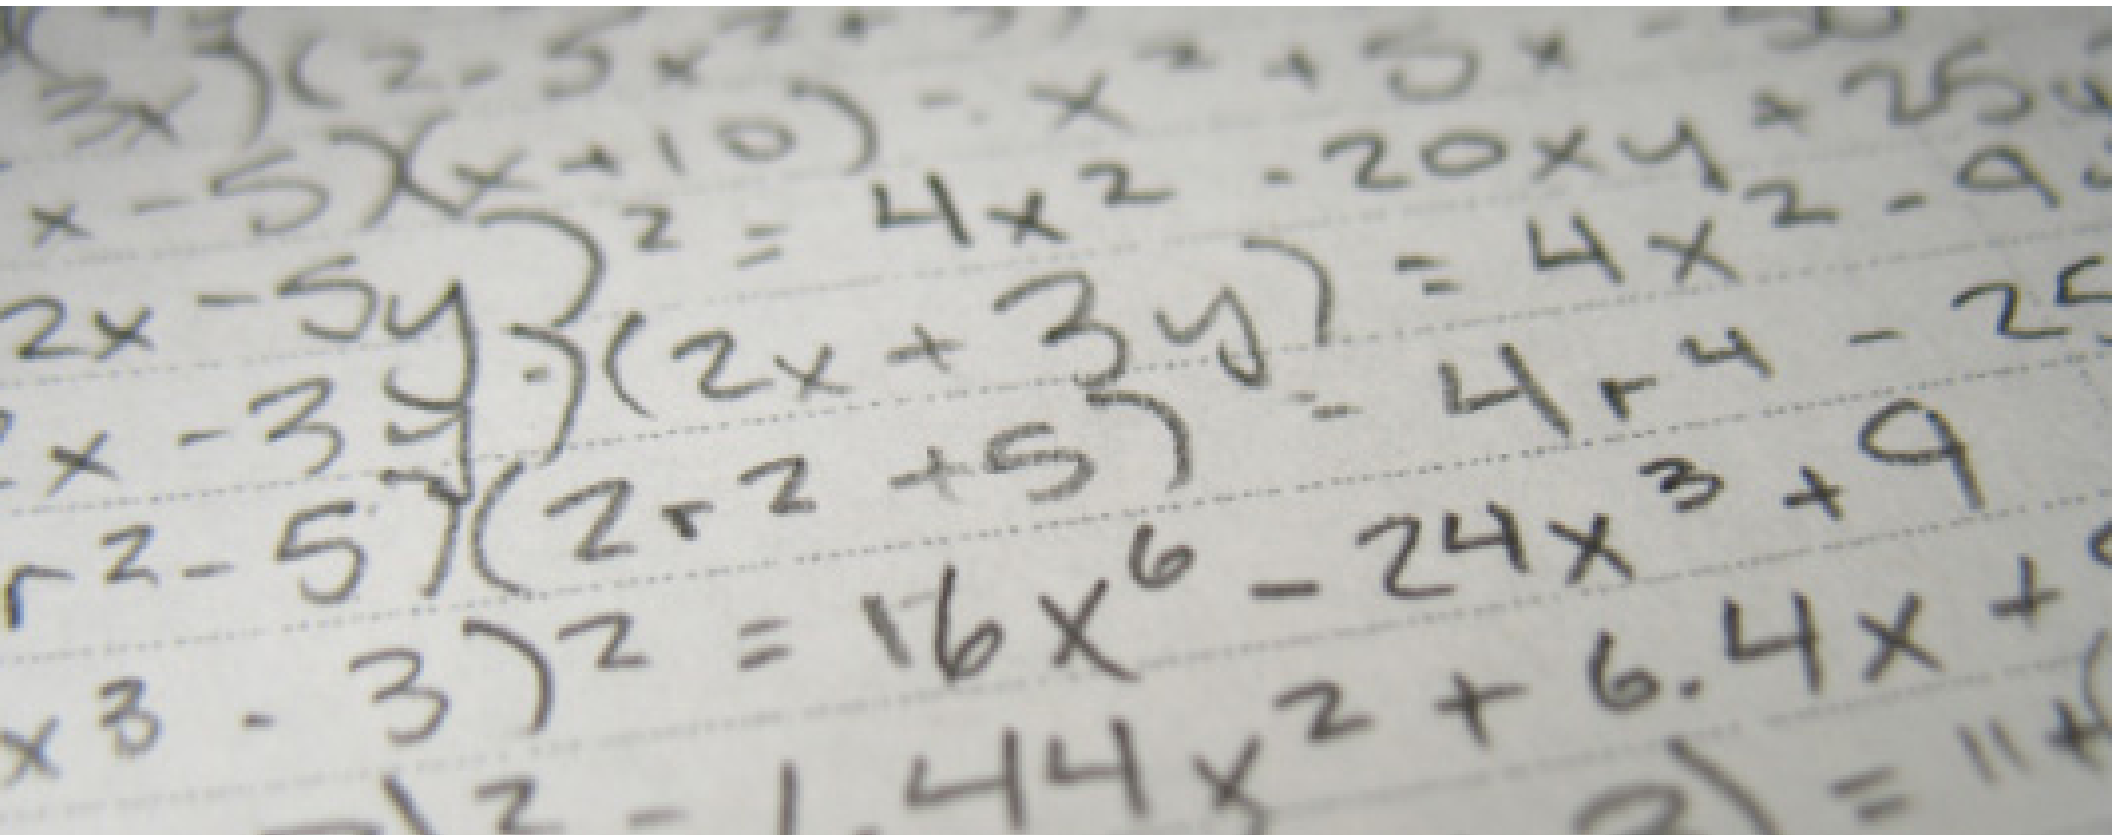 3x)(2-5x²+3)
x-5)(x+10) = x²+5x-50
2x-5y)² = 4x²-20xy+25y
x-3y)·(2x+3y) = 4x²-9y
r²-5)(2r²+5) = 4r⁴-25
x³-3)² = 16x⁶-24x³+9
)²=1.44x²+6.4x+
3) = 11+(